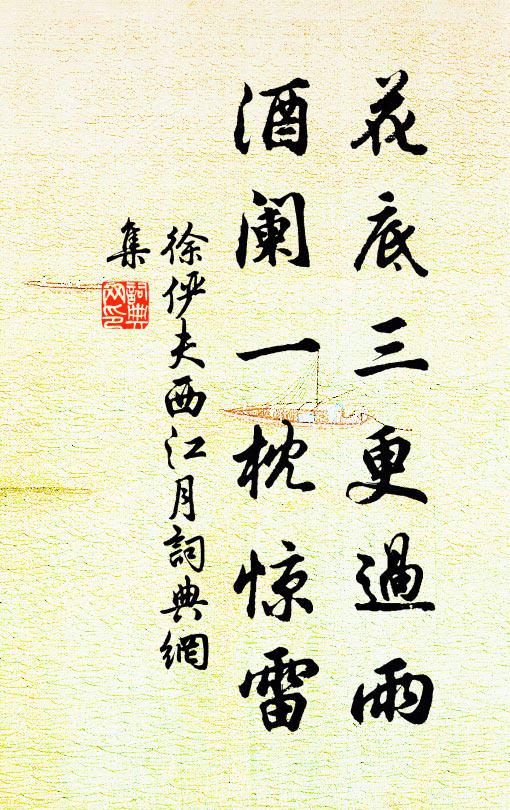 花底三更過雨
酒阑一枕惊雷
徐伊夫西江月詞典網
集
詞典
网印